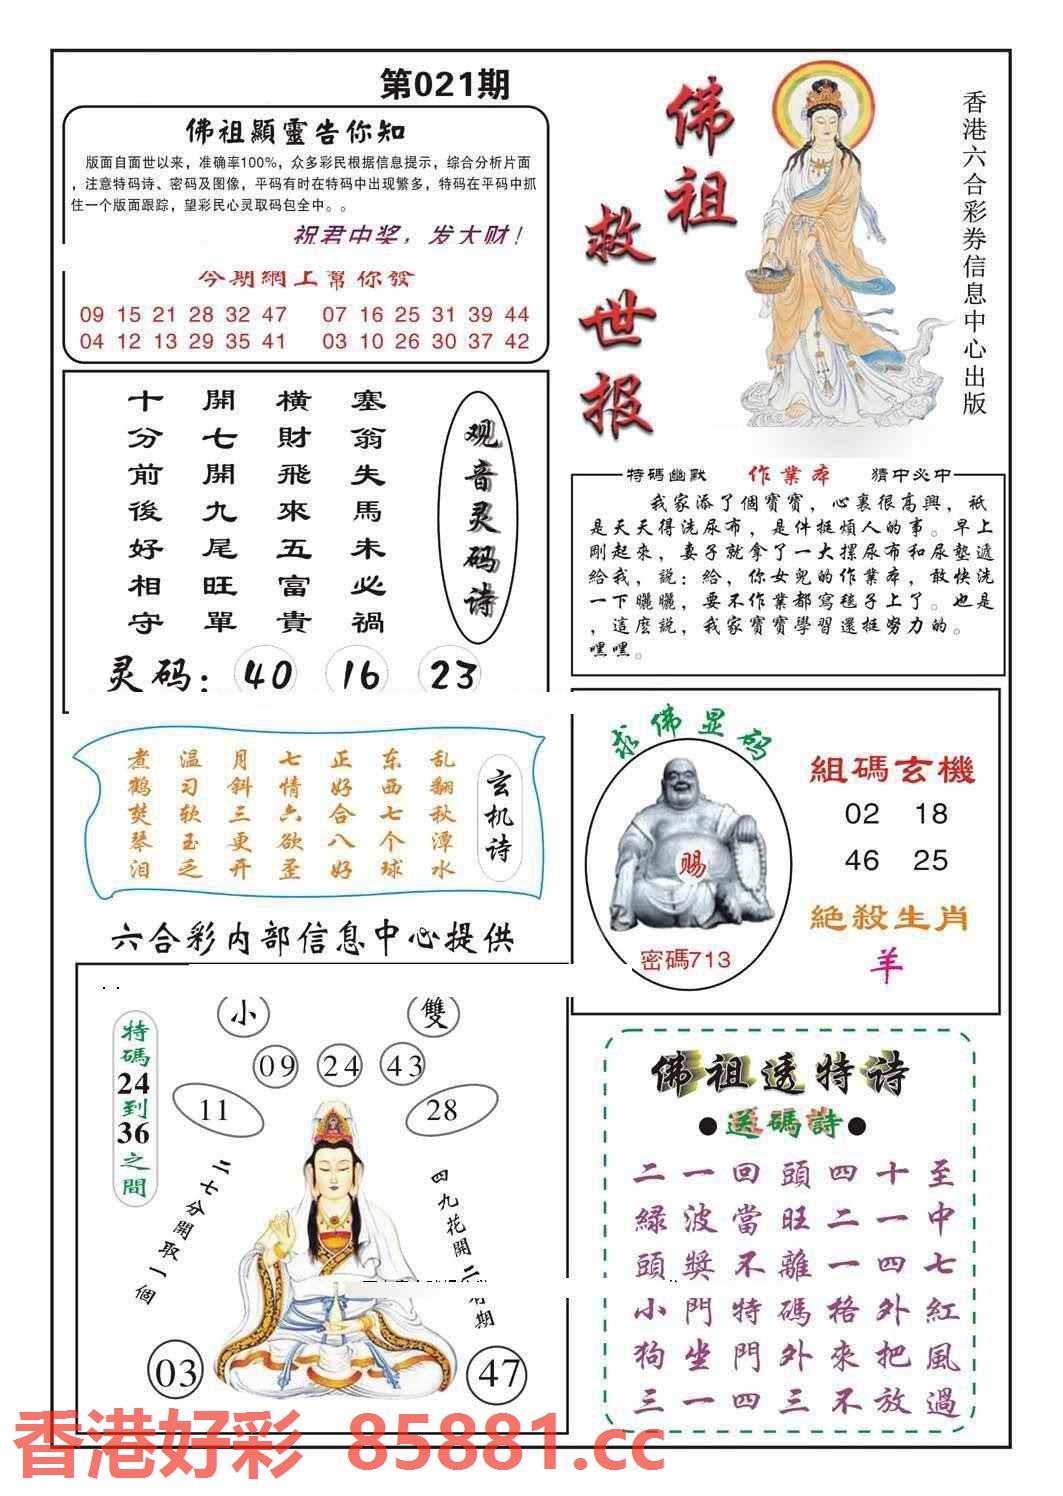 第021期
佛祖顯靈告你知
版面自面世以来，准确率100%，众多彩民根据信息提示，综合分析片面
，注意特码诗、密码及图像，平码有时在特码中出现繁多，特码在平码中抓
住一个版面跟踪，望彩民心灵取码包全中。。
祝君中奖，发大财！
今期網上幫你發
09 15 21 28 32 47 07 16 25 31 39 44
04 12 13 29 35 41 03 10 26 30 37 42
佛祖
救世报
香港六合彩券信息中心出版
观音灵码诗
塞翁失馬未必禍
橫財飛來五富貴
開七開九尾旺單
十分前後好相守
灵码：40 16 23
特碼幽默 作業本 猜中必中
我家添了個寶寶，心裏很高興，祇
是天天得洗尿布，是件挺煩人的事。早上
剛起來，妻子就拿了一大摞尿布和尿墊遞
給我，説：給，你女兒的作業本，敢快洗
一下曬曬，要不作業都寫毯子上了。也是
，這麽説，我家寶寶學習還挺努力的。
嘿嘿。
玄机诗
乱翻秋潭水
东西七个球
正好合八好
七情六欲歪
月斜三更开
温习软玉乏
煮鹤焚琴泪
求佛显码
赐
密碼713
組碼玄機
02 18
46 25
絕殺生肖
羊
六合彩内部信息中心提供
特碼24到36之間
小 雙
09 24 43
11 28
二七分開取一個
四九花開二
期
03 47
佛祖透特诗
●送碼詩●
二一回頭四十至
緑波當旺二一中
頭獎不離一四七
小門特碼格外紅
狗坐門外來把風
三一四三不放過
香港好彩 85881.cc